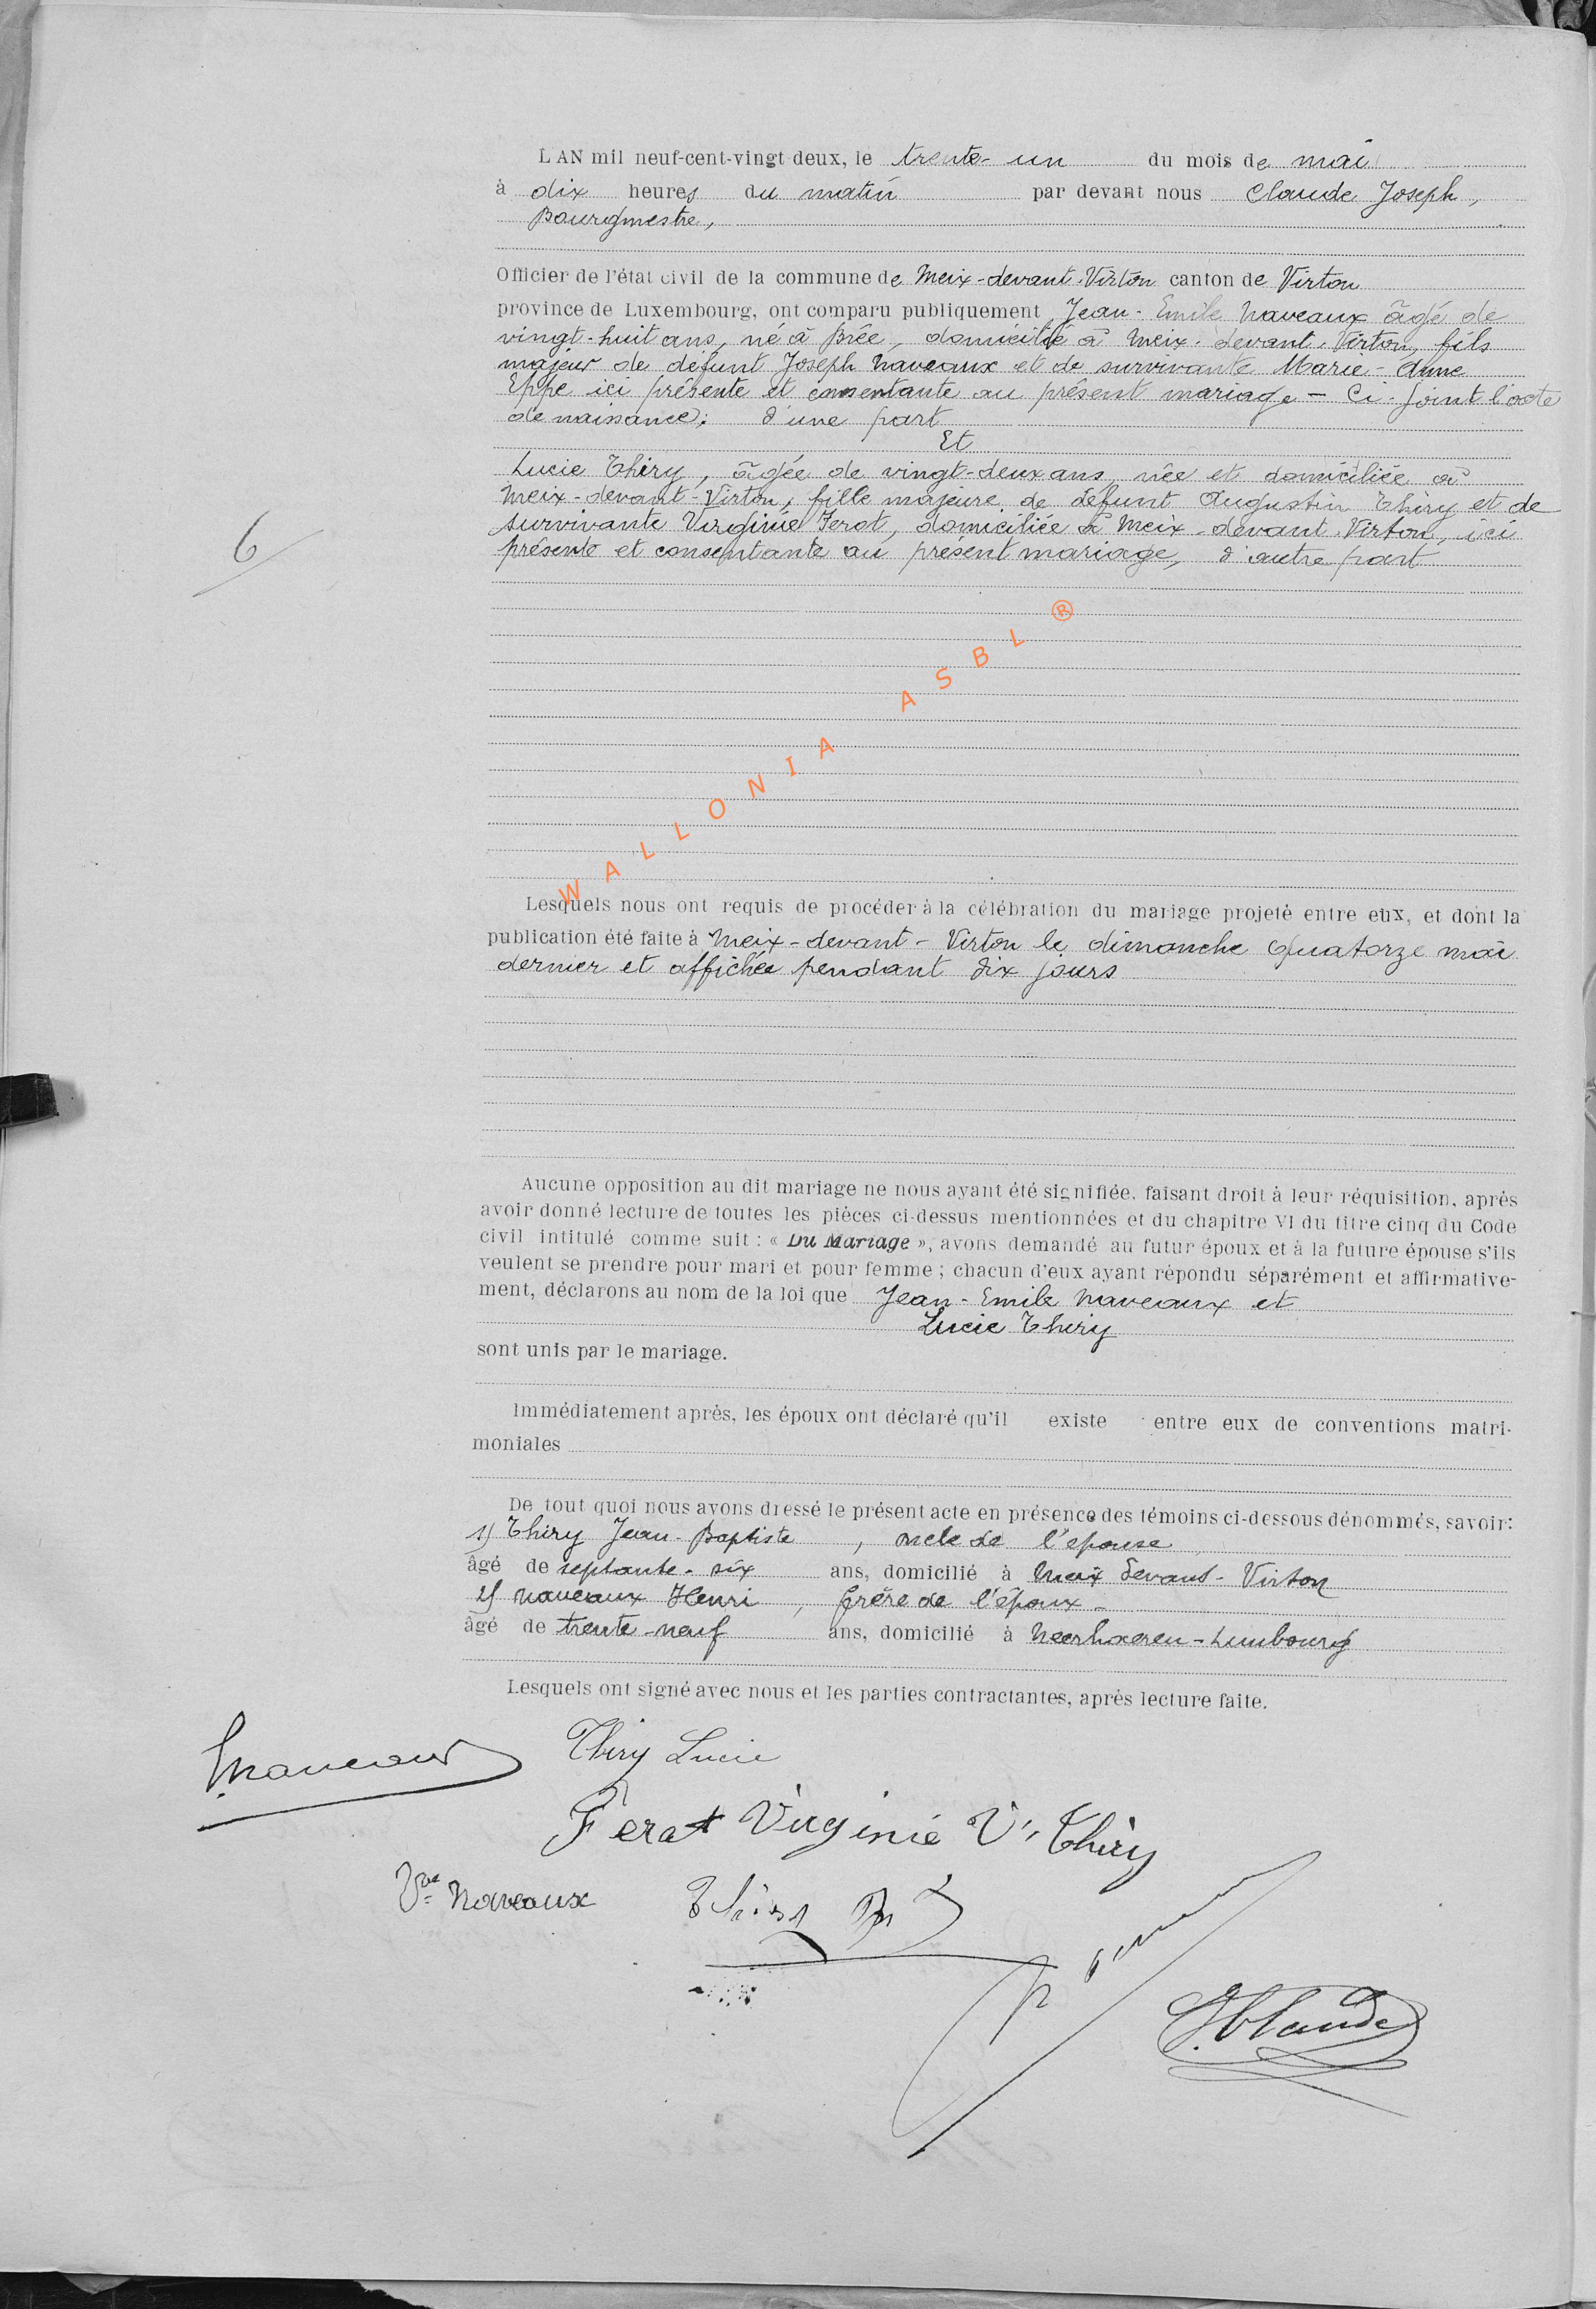 L'AN mil neuf-cent-vingt deux, le trente-un du mois de mai
à dix heures du matin par devant nous Claude Joseph,
Bourgmestre,
Officier de l'état civil de la commune de Meix-devant-Virton canton de Virton
province de Luxembourg, ont comparu publiquement Jean-Emile Naveaux âgé de
vingt-huit ans, né à Brée, domicilié à Meix-devant-Virton, fils
majeur de défunt Joseph Naveaux et de survivante Marie-Anne
Eppe ici présente et consentante au présent mariage - Ci-joint l'acte
de naissance; d'une part
Et
Lucie Thiry, âgée de vingt-deux ans, née et domiciliée à
Meix-devant-Virton, fille majeure de défunt Augustin Thiry et de
survivante Virginie Ferot, domiciliée à Meix-devant-Virton, ici
présente et consentante au présent mariage, d'autre part
6
WALLONIA ASBL ®
Lesquels nous ont requis de procéder à la célébration du mariage projeté entre eux, et dont la
publication été faite à Meix-devant-Virton le dimanche quatorze mai
dernier et affichée pendant dix jours
Aucune opposition au dit mariage ne nous ayant été signifiée, faisant droit à leur réquisition, après
avoir donné lecture de toutes les pièces ci-dessus mentionnées et du chapitre VI du titre cinq du Code
civil intitulé comme suit : « Du Mariage », avons demandé au futur époux et à la future épouse s'ils
veulent se prendre pour mari et pour femme ; chacun d'eux ayant répondu séparément et affirmative-
ment, déclarons au nom de la loi que Jean-Emile Naveaux et
Lucie Thiry
sont unis par le mariage.
Immédiatement après, les époux ont déclaré qu'il existe entre eux de conventions matri-
moniales
De tout quoi nous avons dressé le présent acte en présence des témoins ci-dessous dénommés, savoir:
1) Thiry Jean-Baptiste, oncle de l'epouse
âgé de septante-six ans, domicilié à Meix devant-Virton
2) Naveaux Henri, frère de l'époux -
âgé de trente-neuf ans, domicilié à Neerhaeren-Limbourg
Lesquels ont signé avec nous et les parties contractantes, après lecture faite.
Naveaux Thiry Lucie
Ferot Virginie Ve Thiry
Vve Naveaux Thiry
Claude